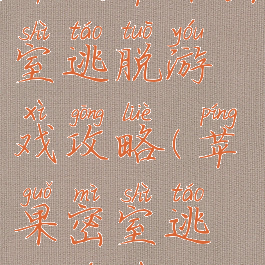 shì táo tuō yóu
室逃脱游
xì gōng lüè píng
戏攻略(苹
guǒ mì shì táo
果密室逃